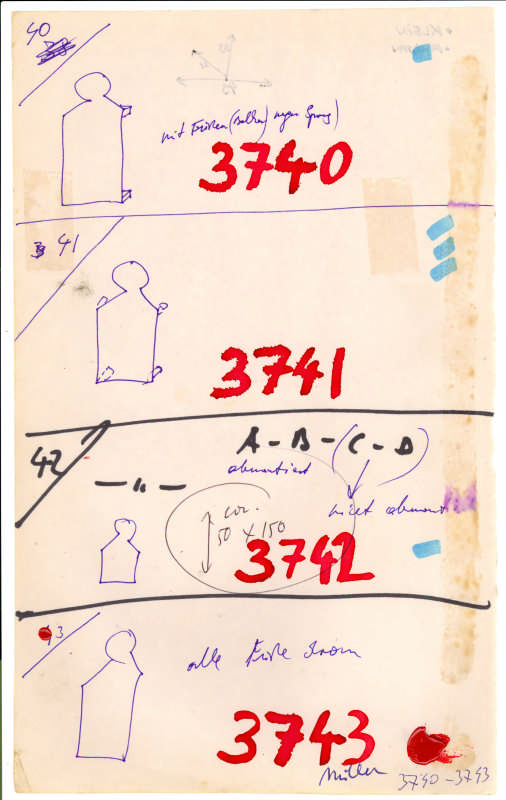 40
mit Füßen (Balken) wegen Sprung)
3740
41
3741
42
A - B - (C - D)
abmontiert
— " —
nicht abmont
ca.
50 x 150
3742
43
alle Füße dran
3743
Müller
3740 - 3743